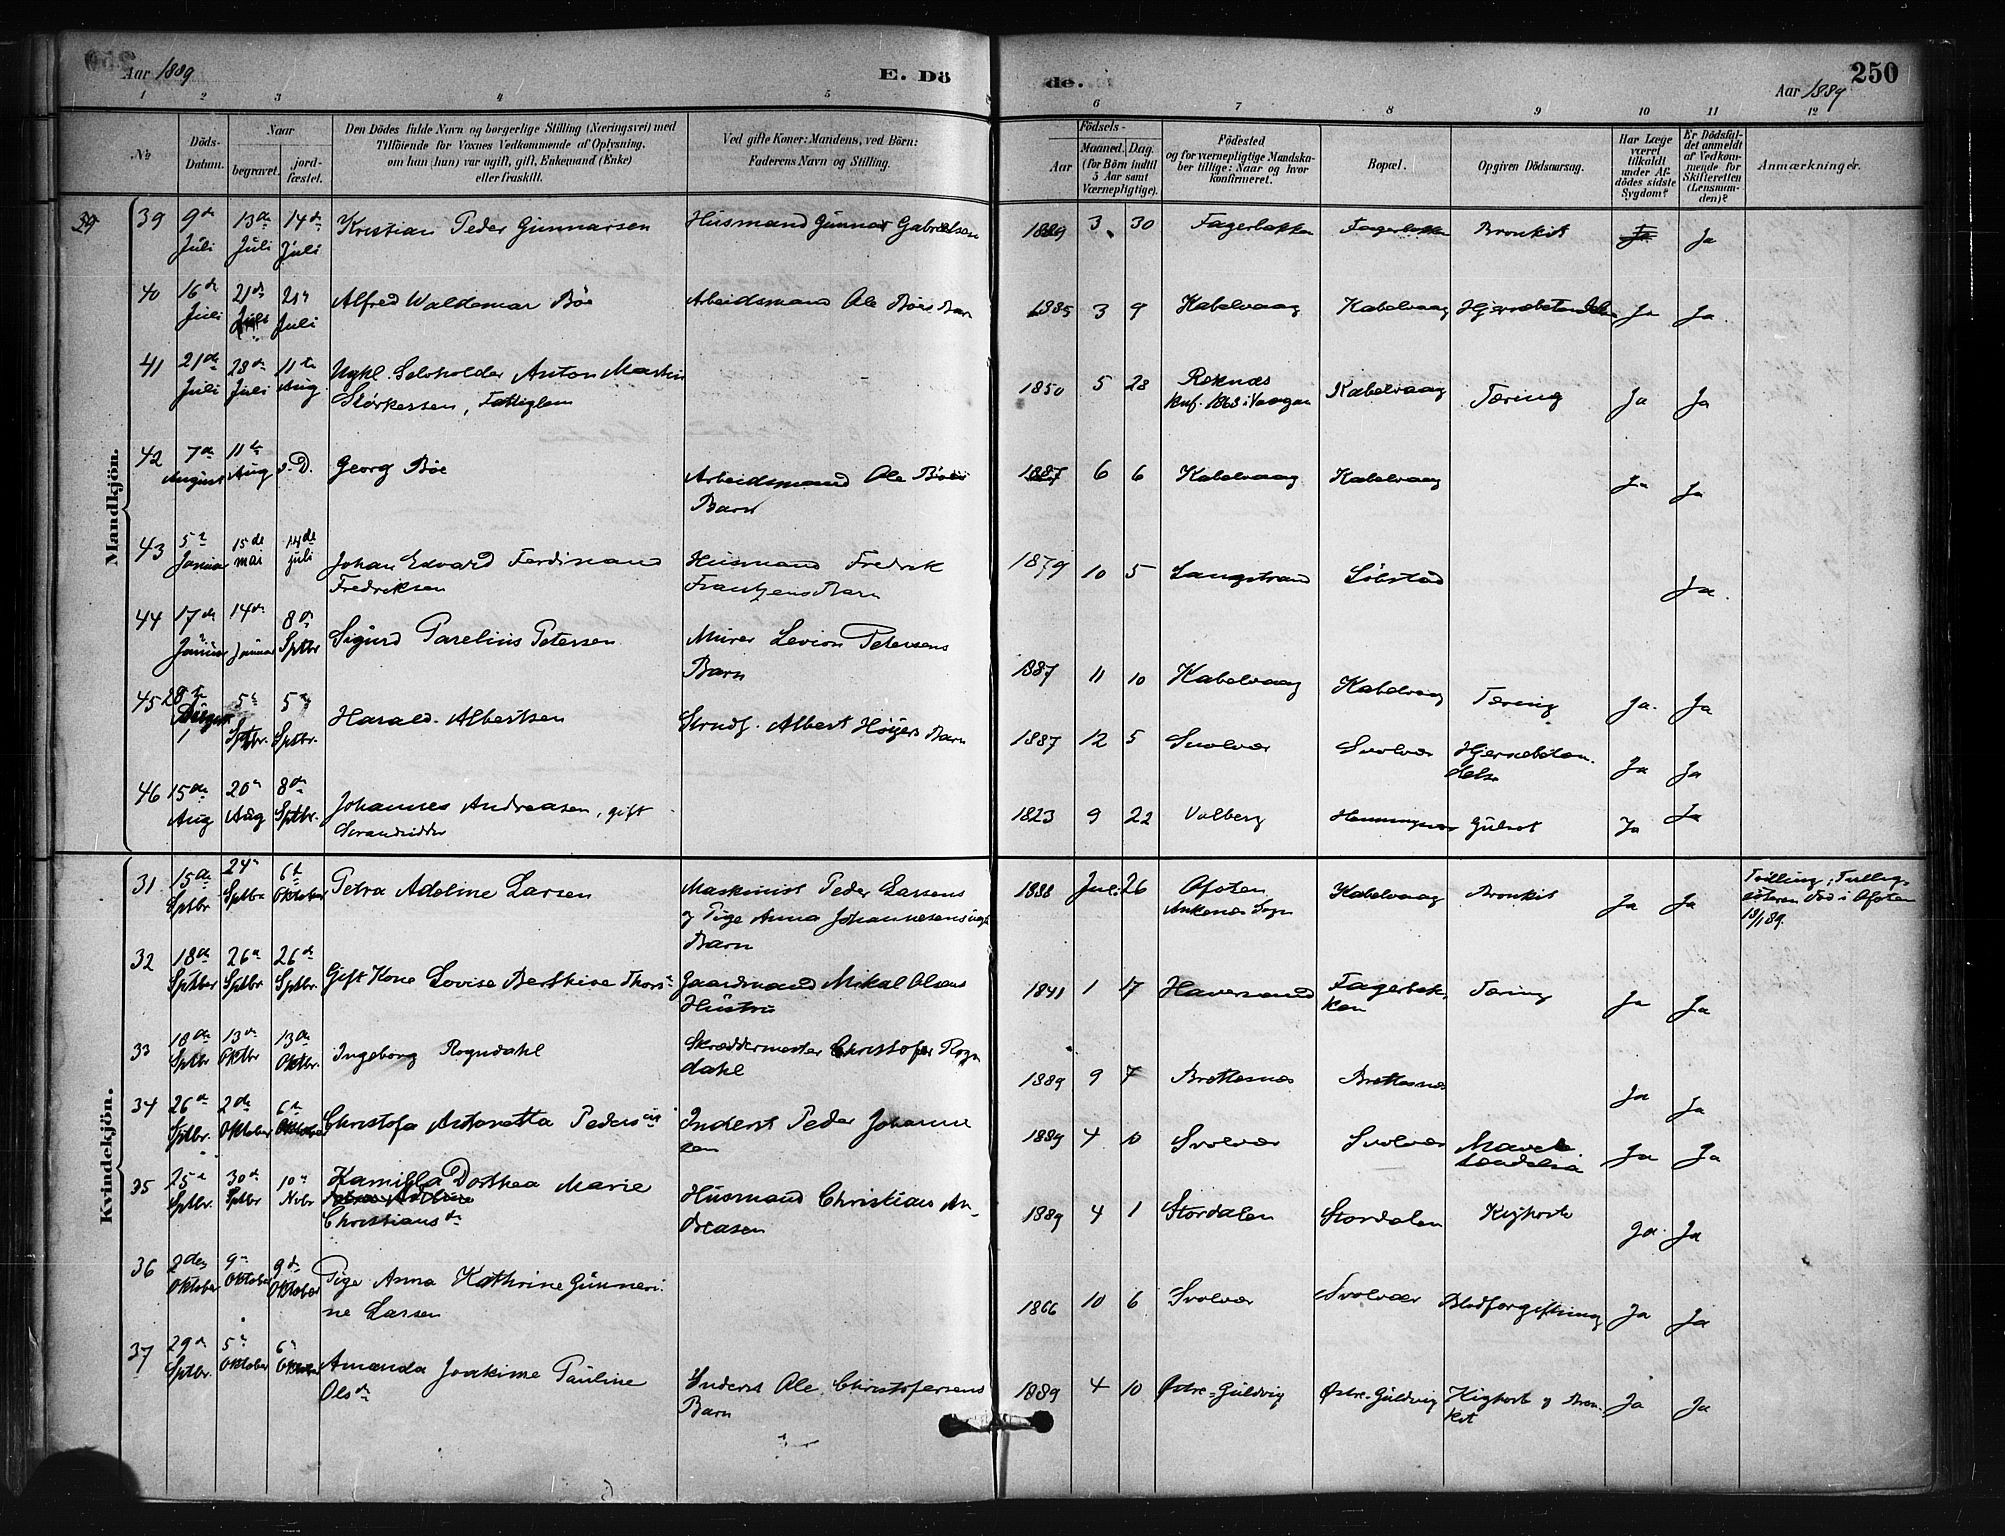 Aar 1889
E. Dö
1 2 3 4 5
№
Döds-Datum.
Naar
begravet.
jord-fæstet.
Den Dödes fulde Navn og borgerlige Stilling (Næringsvei) med
Tilföiende for Voxnes Vedkommende af Oplysning,
om han (hun) var ugift, gift, Enkemand (Enke)
eller fraskilt.
Ved gifte Koner: Mandens, ved Börn:
Faderens Navn og Stilling.
de.
250
Aar 1889
6 7 8 9 10 11 12
Födsels-
Aar
Maaned. Dag.
(for Börn indtil
5 Aar samt
Værnepligtige).
Födested
og for værnepligtige Mandska-
ber tillige: Naar og hvor
konfirmeret.
Bopæl.
Opgiven Dödsaarsag.
Har Læge
været
tilkaldt
under Af-
dödes sidste
Sygdom?
Er Dödsfal-
det anmeldt
af Vedkom-
mende for
Skifteretten
(Lensman-
den)?
Anmærkninger.
Mandkjön.
39 9de Juli 13de Juli 14de Juli Kristian Peder Gunnarsen Husmand Gunnar Gabrielsen 1889 3 30 Fagerbakken Fagerbakken Bronkit Ja Ja
40 16de Juli 21de Juli 21de Juli Alfred Waldemar Böe Arbeidsmand Ole Böes Barn 1885 3 9 Kabelvaag Kabelvaag Hjernebetændelse Ja Ja
41 21de Juli 28de Juli 11te Aug Ugkl. Selvholder Anton Martin
Störkersen, Fattiglem 1850 5 28 Reknæs
Knf. 1868 i Vaagan Kabelvaag Tæring Ja Ja
42 7de August 11te Aug s. D. Georg Böe Arbeidsmand Ole Böes
Barn 1887 6 6 Kabelvaag Kabelvaag Ja Ja
43 5te Januar 15de mai 14de juli Johan Edvard Ferdinand
Fredriksen Husmand Fredrik
Frantzens Barn 1879 10 5 Langstrand Löbstad Ja.
44 17de Januar 14de Januar 8de Sptbr Sigurd Parelius Petersen Murer Petersens
Barn 1887 11 10 Kabelvaag Kabelvaag Tæring Ja. Ja
45 28te August 5te Sptbr. 5te Sptbr. Harald Albertsen Albert Höijers Barn 1887 12 5 Svolvær Svolvær Hjernebetæn-
delse Ja Ja
46 15de Aug 20de Aug 8de Sptbr. Johannes Andreasen, gift
Strandsidder 1823 9 22 Valberg Henningsvær Gulsot Ja Ja
Kvindekjön.
31 15de Sptbr 24de Sptbr 6te Oktober Petra Adeline Larsen Maskinist Peder Larsens
og Pige Anna Johannesens
Barn 1888 Juli 26 Ofoten
Ankenæs Sogn Kabelvaag Bronkit Ja Ja Tvilling;
död i Ofoten
89.
32 18de Sptbr 26de Sptbr 26de Sptbr. Gift Kone Lovise Berthine Thors Gaardmand Mikal Olsens
Hustru 1841 1 17 Haversand Fagerbak-
ken Tæring Ja Ja
33 18de Sptbr 13de Oktbr 13de Oktbr. Ingeborg Rogndahl Skræddermester Christofer Rogn
dahl 1889 9 7 Brettesnæs Brettesnæs Ja Ja
34 26de Sptbr. 2den Oktober 6te Oktober Christofa Antonetta Pedersdtr Inderst Peder Johanne
sen 1889 4 0 Svolvær Svolvær Mavebe-
tændelse Ja Ja
35 25de Sptbr. 30de Sptbr 10de Nvbr Kamilla Dorthea Marie
Christiansdr Husmand Christian An-
dreasen 1889 4 1 Stordalen Stordalen Kighoste Ja Ja
36 2den Oktober 9de Oktober 9de Oktober Pige Anna Kathrine Gunneri-
ne Larsen 1866 10 6 Svolvær Svolvær Blodforgiftning Ja Ja
37 29de Sptbr. 5te Oktober 6te Oktober Amanda Joakime Pauline
Olsdr Inderst Ole Christofersens
Barn 1889 4 10 Östre-Guldvig Östre-Guldvig Kighoste og Bron-
kit Ja Ja